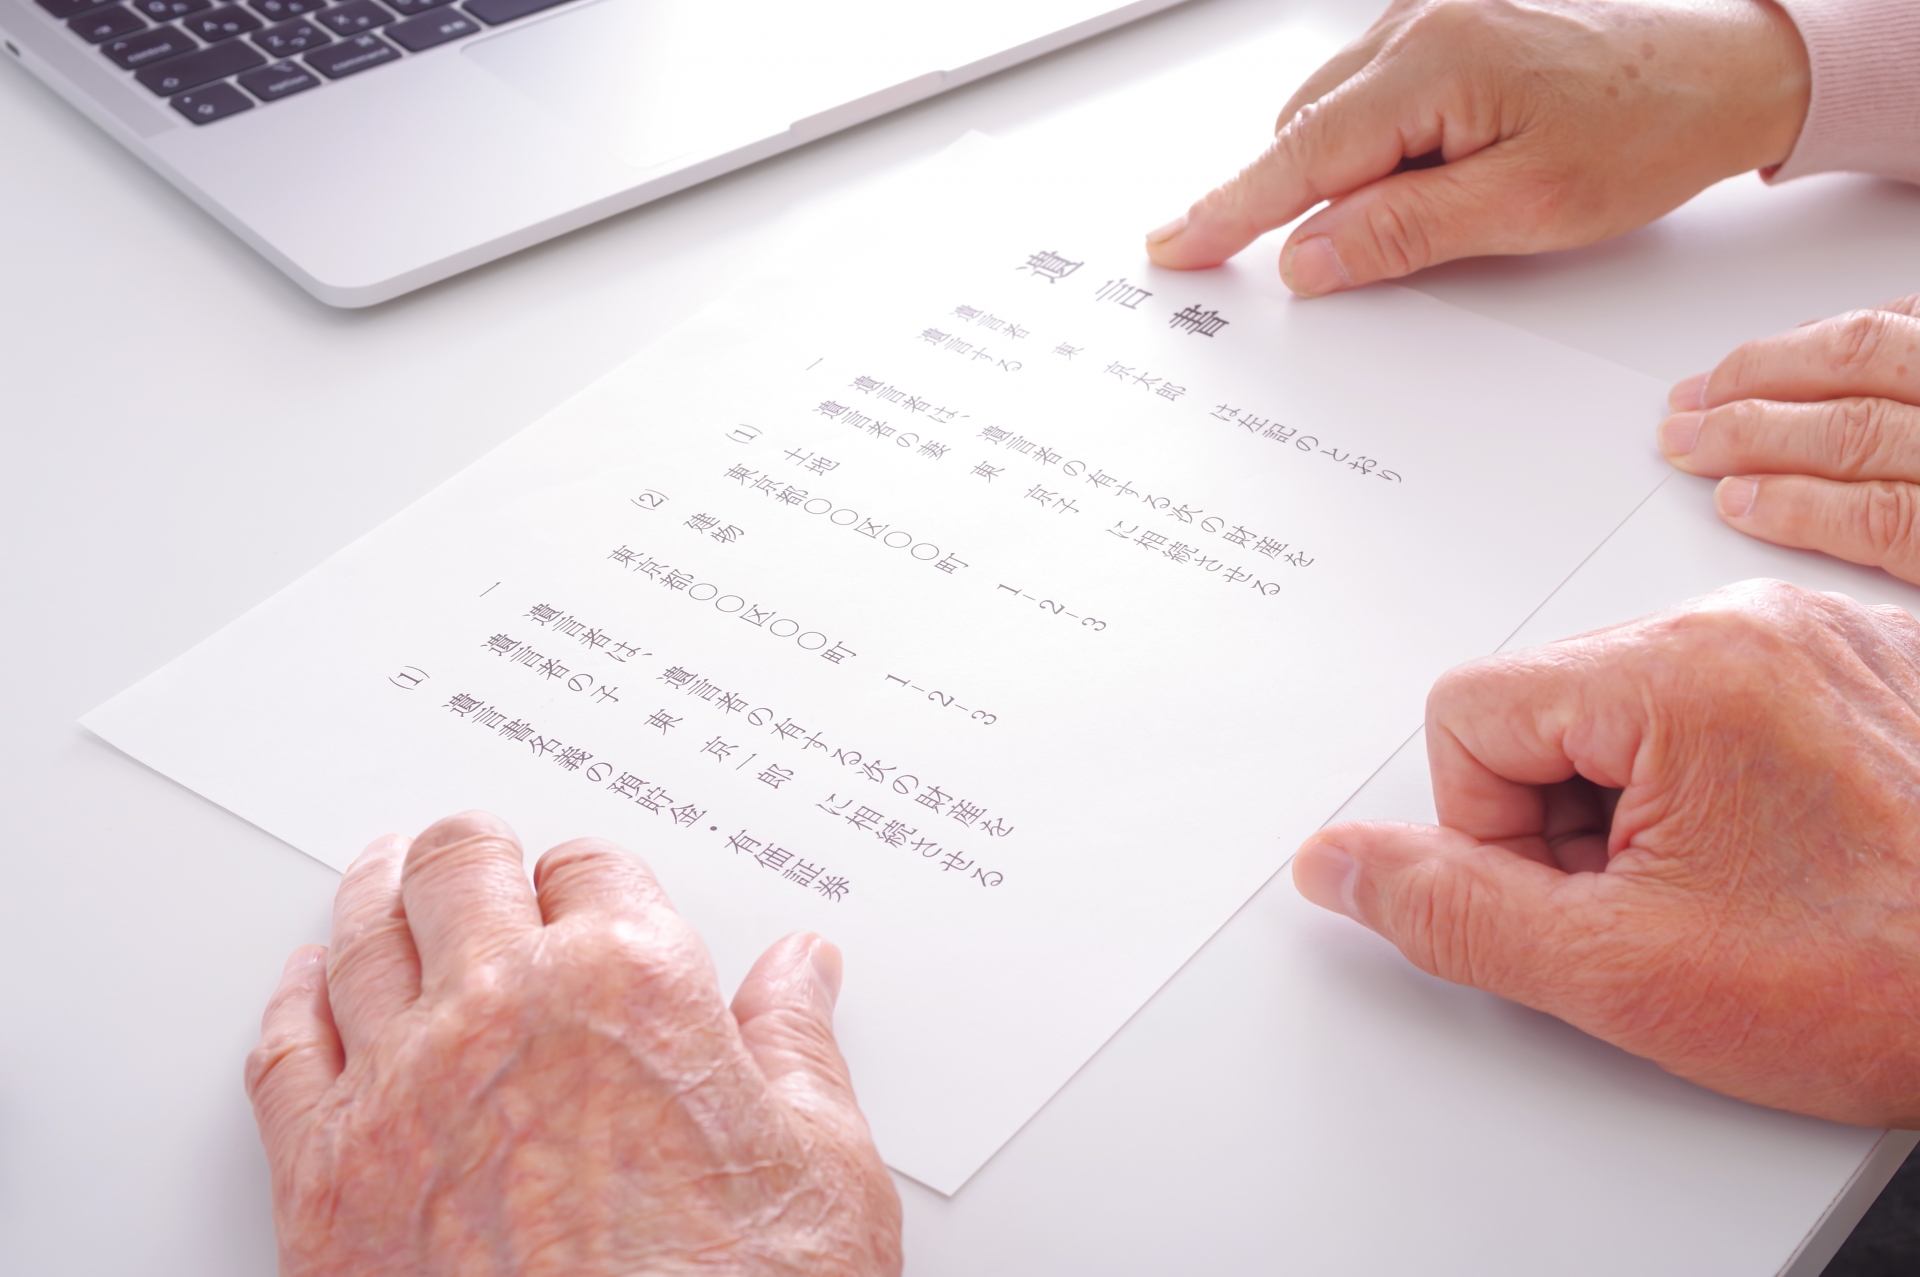 遺言書
遺言者 東 京太郎 は左記のとおり
遺言する
一 遺言者は、遺言者の有する次の財産を
遺言者の妻 東 京子 に相続させる
(1) 土地
東京都〇〇区〇〇町 1-2-3
(2) 建物
東京都〇〇区〇〇町 1-2-3
一 遺言者は、遺言者の有する次の財産を
遺言者の子 東 京一郎 に相続させる
(1) 遺言書名義の預貯金・有価証券
control
option
command